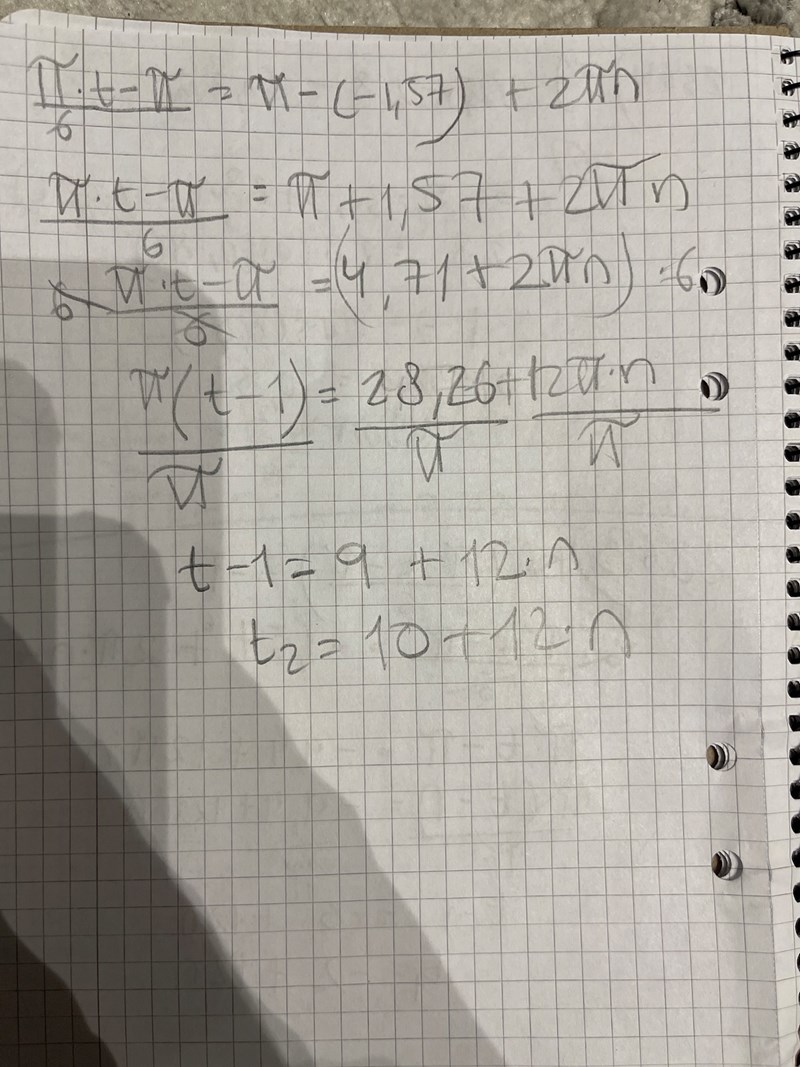 (π·t-π)/6 = π-(-1,57) + 2πn
(π·t-π)/6 = π+1,57+2πn
6 (π·t-π)/6 = (4,71+2πn)·6
π(t-1)/π = 28,26/π + 12π·n/π
t-1=9 +12·n
t₂=10+12·n